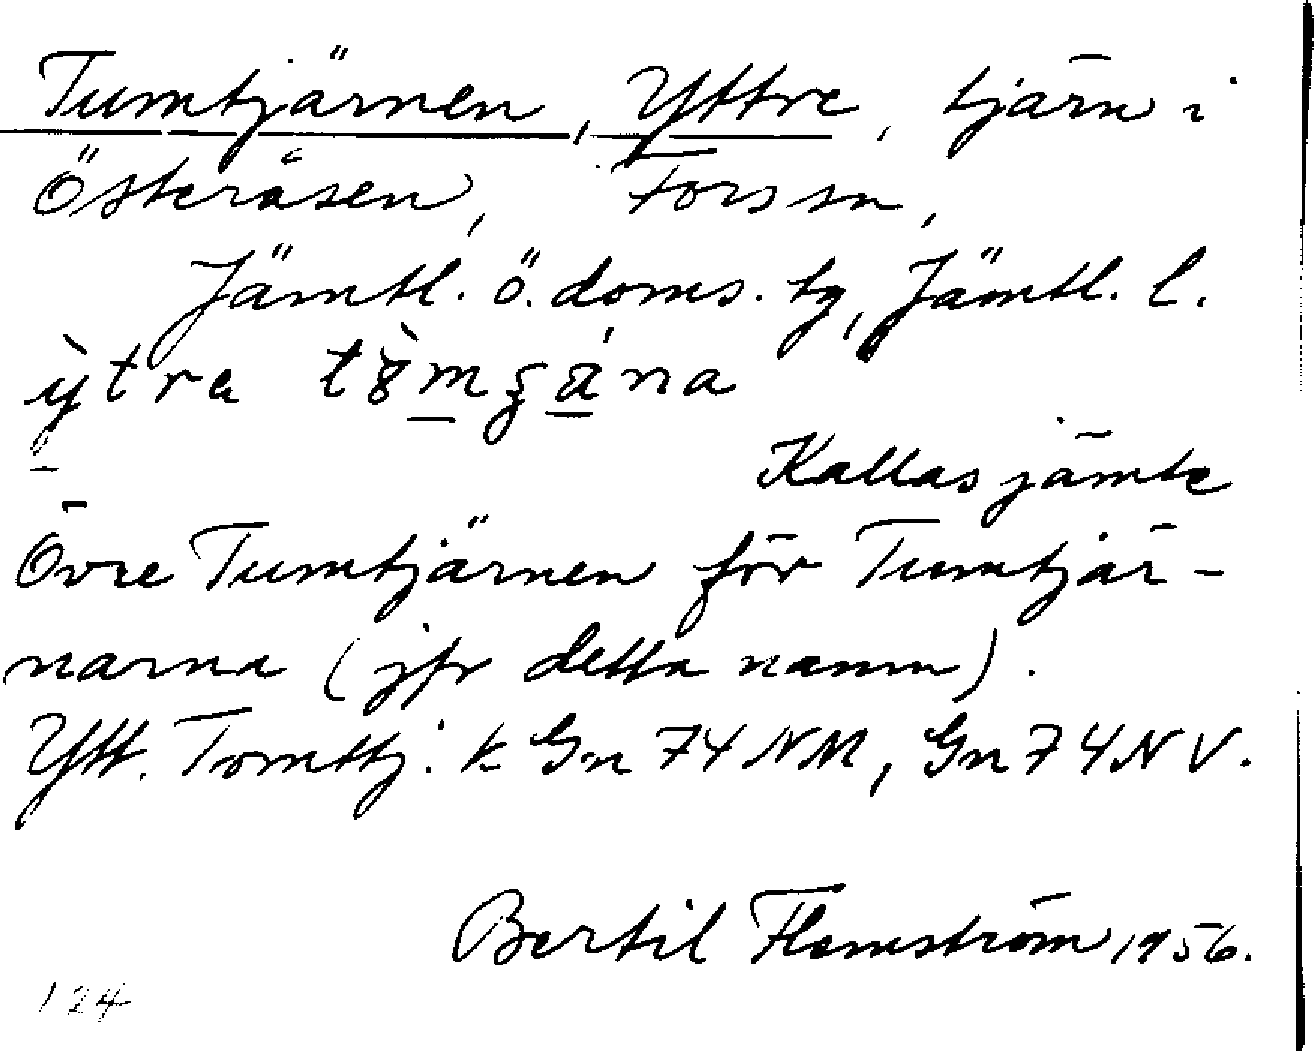 Tumtjärnen, Yttre, tjärn i
Österåsen, Fors sn,
Jämtl. ö. doms. tg, Jämtl. l.
Kallas jämte
Övre Tumtjärnen för Tumtjär-
narna (jfr detta namn).
Ytt. Tomttj. k Gn 74 NM, Gn 74 NV.
Bertil Flemström 1956.
124